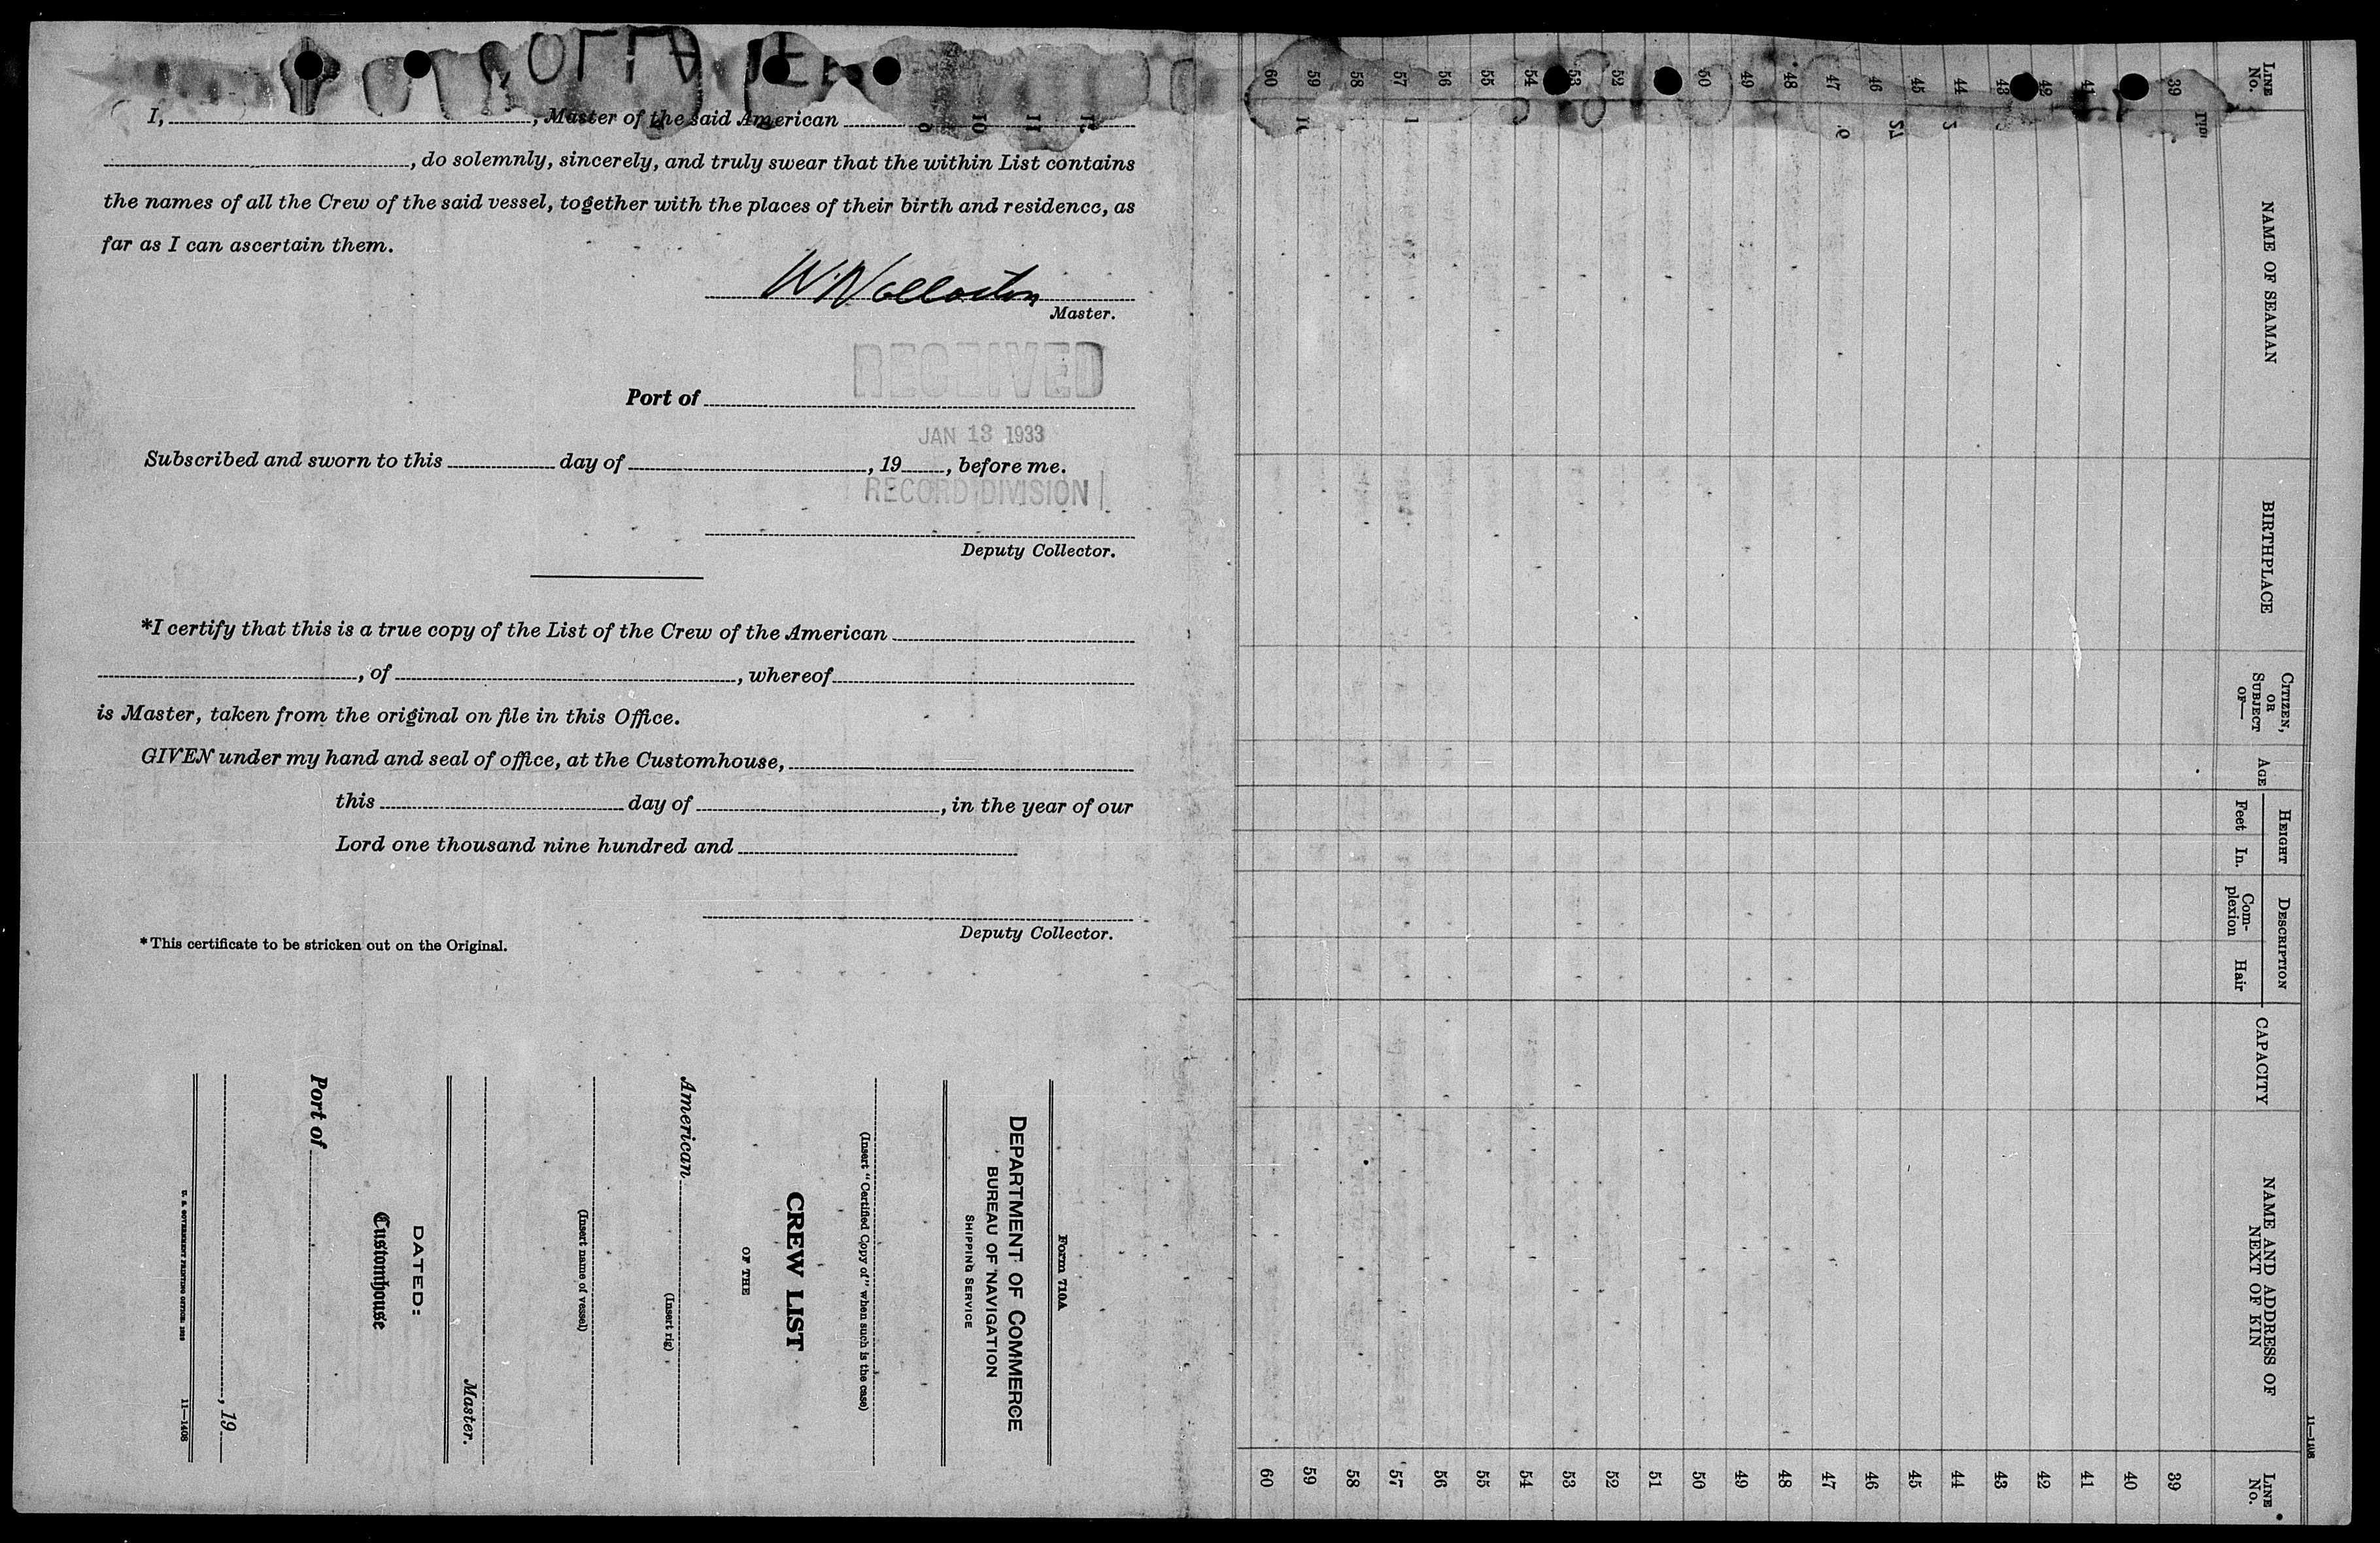 I, , Master of the said American
, do solemnly, sincerely, and truly swear that the within List contains
the names of all the Crew of the said vessel, together with the places of their birth and residence, as
far as I can ascertain them.
Master.
RECEIVED
Port of
JAN 13 1933
Subscribed and sworn to this day of , 19 , before me.
RECORD DIVISION
Deputy Collector.
*I certify that this is a true copy of the List of the Crew of the American
, of , whereof
is Master, taken from the original on file in this Office.
GIVEN under my hand and seal of office, at the Customhouse,
this day of , in the year of our
Lord one thousand nine hundred and
Deputy Collector.
*This certificate to be stricken out on the Original.
Form 710A
DEPARTMENT OF COMMERCE
BUREAU OF NAVIGATION
SHIPPING SERVICE
(Insert "Certified Copy of" when such is the case)
CREW LIST
OF THE
American
(Insert rig)
(Insert name of vessel)
Master.
DATED:
Customhouse
Port of
, 19
U. S. GOVERNMENT PRINTING OFFICE
11—1408
11—1408
LINE No.
NAME OF SEAMAN
BIRTHPLACE
CITIZEN, OR SUBJECT OF—
AGE
HEIGHT
Feet In.
DESCRIPTION
Complexion Hair
CAPACITY
NAME AND ADDRESS OF NEXT OF KIN
LINE No.
39 39
40
41 41
42 42
43 43
44 44
45 45
46 46
47 47
48 48
49 49
50 50
51
52 52
53 53
54 54
55 55
56 56
57 57
58 58
59 59
60 60